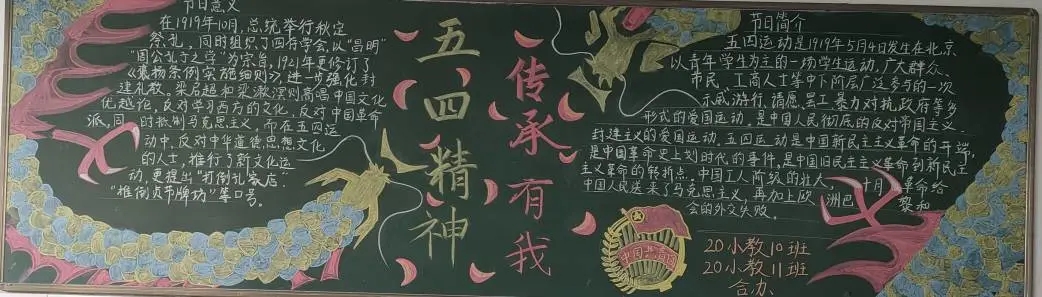 节日意义
在1919年10月,总统举行秋定
祭礼,同时组织了四存学会,以"昌明"
"周公孔子之学"为宗旨,1921年更修订了
《褒扬条例实施细则》,进一步强化封
建礼教。梁启超和梁漱溟则高唱中国文化
优越论,反对学习西方的文化,反对中国革命
派,同时抵制马克思主义,而在五四运
动中,反对中华道德,思想文化
的人士,推行了新文化运
动,更提出"打倒孔家店"
"推倒贞节牌坊"等口号。
五、四精神
传承有我
节日简介
五四运动是1919年5月4日发生在北京
以青年学生为主的一场学生运动,广大群众、
市民、工商人士等中下阶层广泛参与的一次
示威游行、请愿、罢工、暴力对抗政府等多
形式的爱国运动,是中国人民彻底的反对帝国主义、
封建主义的爱国运动。五四运动是中国新民主主义革命的开端,
是中国革命史上划时代的事件,是中国旧民主主义革命到新民主
主义革命的转折点。中国工人阶级的壮大,十月革命给
中国人民送来了马克思主义,再加上欧洲巴黎和
会的外交失败。
中国共青团
20小教10班
20小教11班
合办